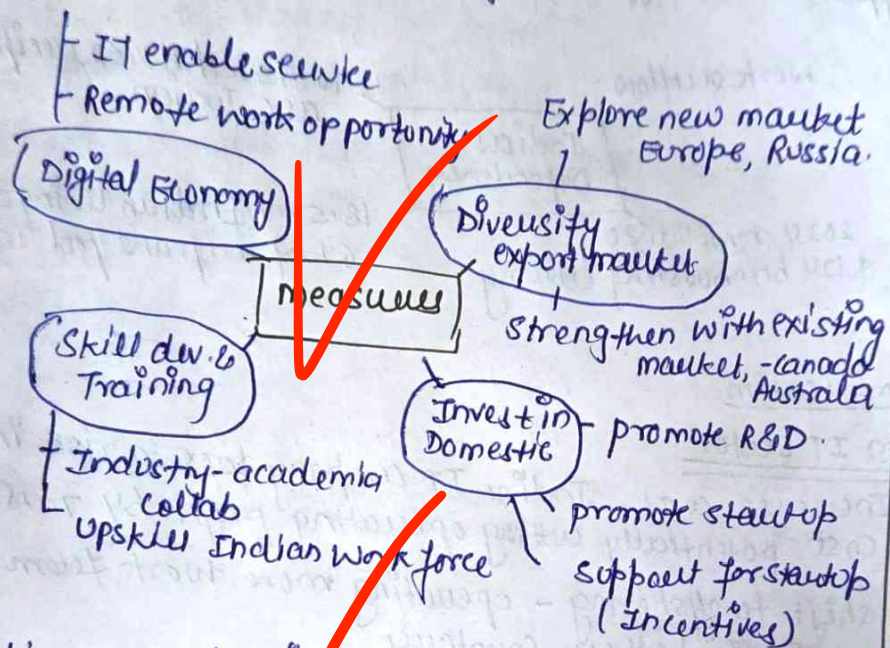 IT enable service
Remote work opportunity
Digital Economy
Explore new market
Europe, Russia.
Diversify
export market
Measures
Strengthen with existing
market, -canada
Australa
Skill dev. &
Training
Industry-academia
collab
Upskill Indian workforce
Invest in
Domestic
promote R&D.
promote startup
support for startup
(Incentives)